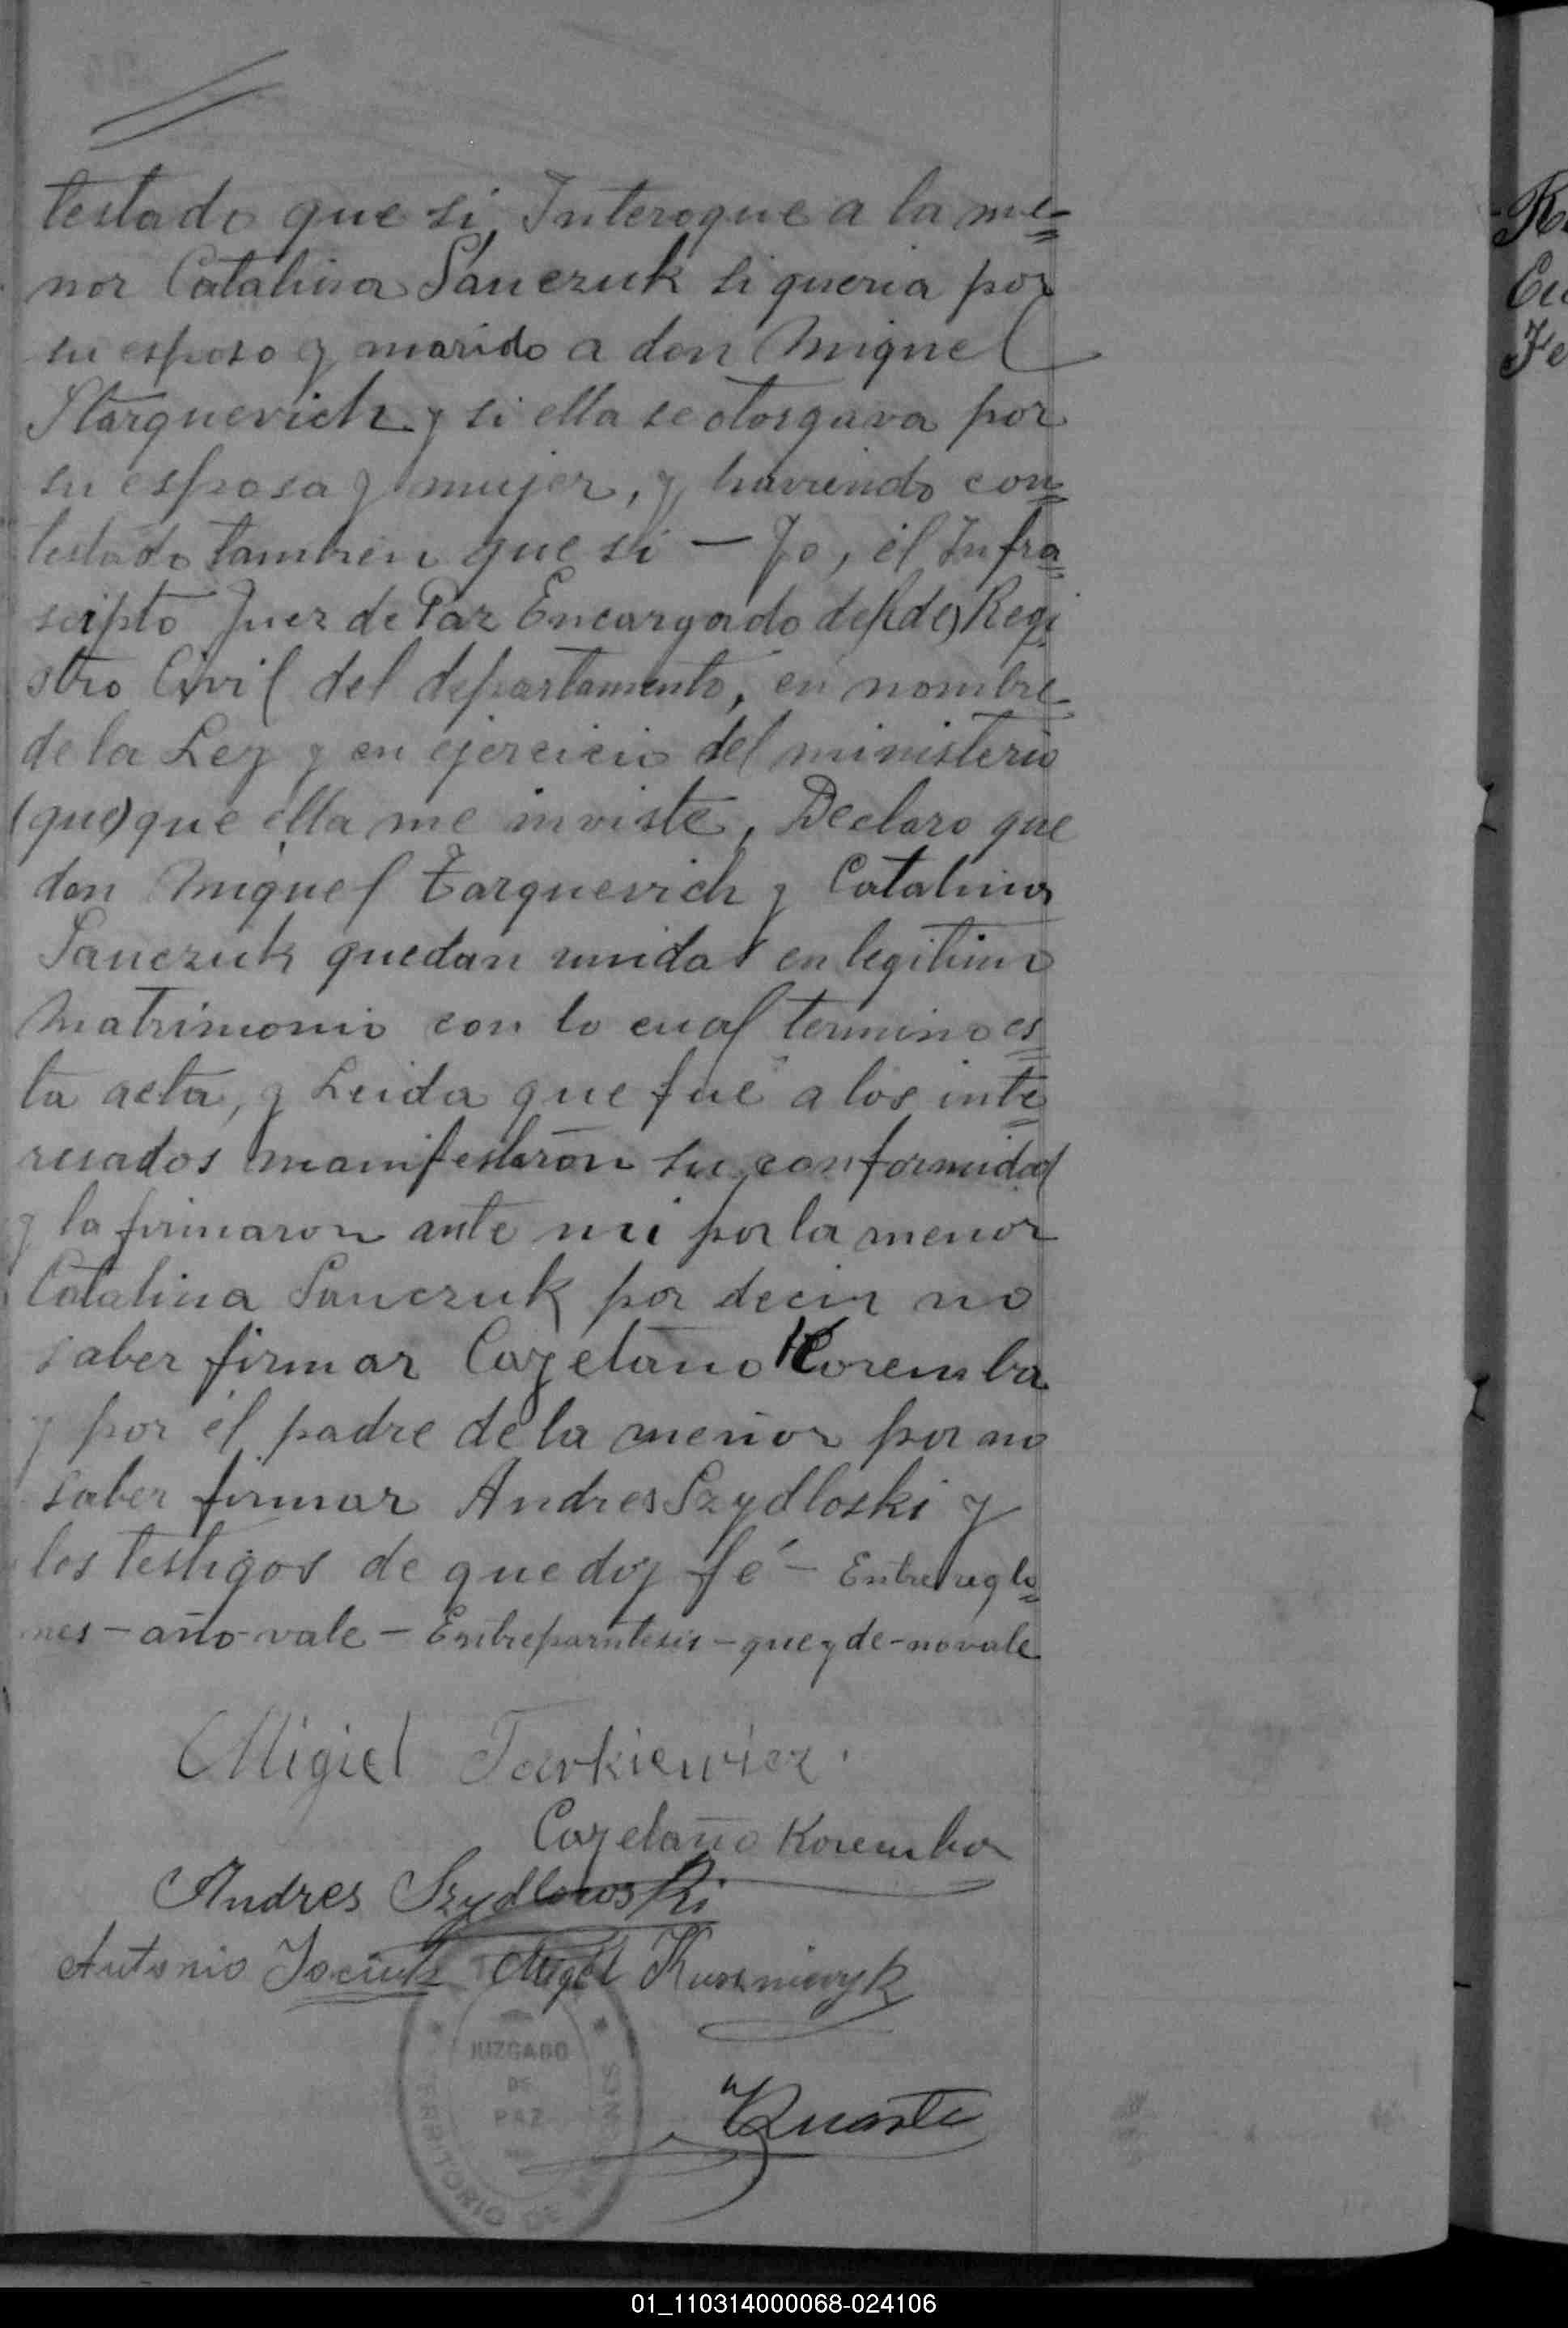 testado que si, Interogue a la me=
nor Catalina Sanczuk si queria por
su esposo y marido a don Miguel
Starquevich y si ella se otorgava por
su esposa y mujer, y haviendo con=
testado tambien que si — Yo, el Infra=
scipto Juez de Paz Encargado del (de) Regi
stro Civil del departamento, en nombre
de la Ley y en ejercicio del ministerio
(que) que ella me inviste, Declaro que
don Miguel Tarquevich y Catalina
Sanczuk quedan unidos en legitimo
Matrimonio con lo cual termino es=
ta acta, y Leida que fué a los inte=
resados manifestaron su conformidad
y la firmaron ante mi por la menor
Catalina Sanczuk por decir no
saber firmar Cayetano Koremba
y por el padre de la menor por no
saber firmar Andres Szydloski y
los testigos de que doy fé – Entrereglo=
nes – año vale – Entreparntesis – que y de – no vale
Migiel Tarkiewicz.
Cayetano Koremba
Andres Szydlowski
Antonio Migel
JUZGADO
DE
PAZ
TERRITORIO DE
Duarte
Ci
Fe
01_110314000068-024106